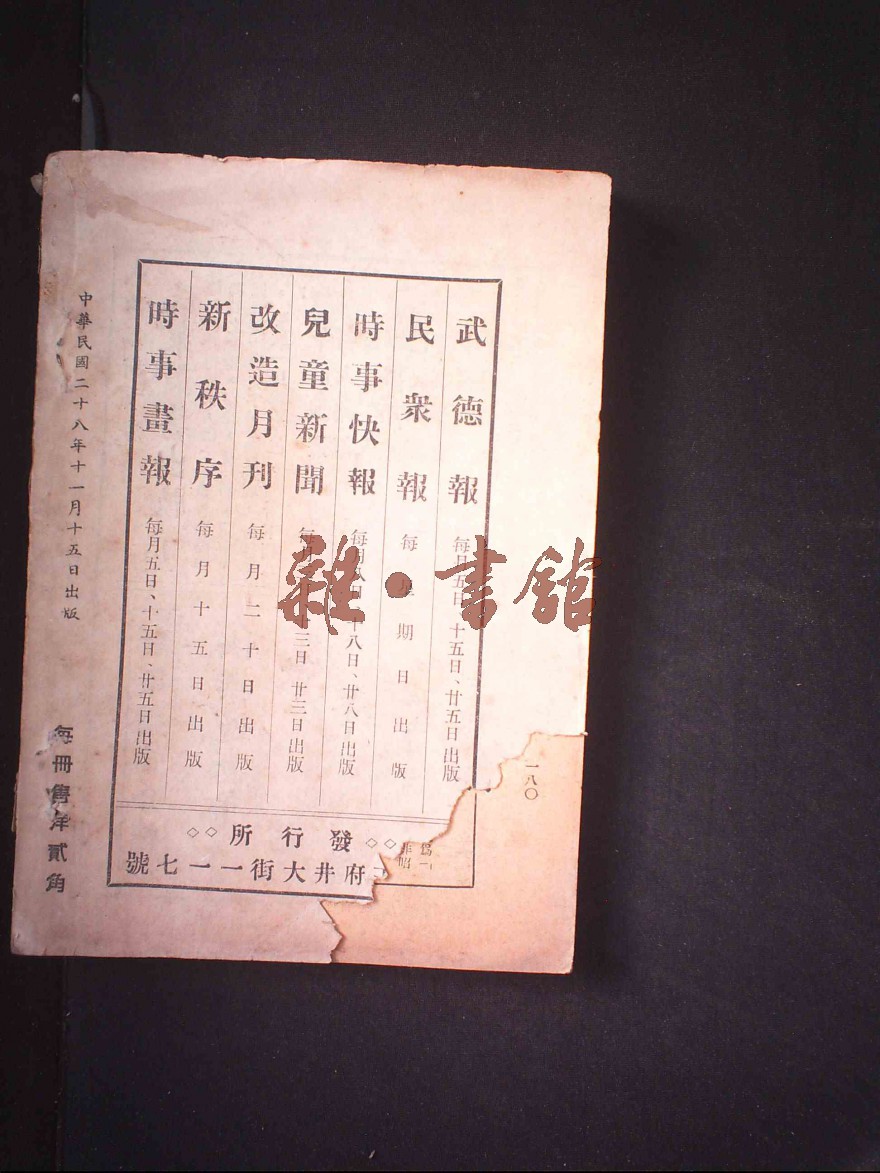 武德報 每月五日、十五日、廿五日出版
民衆報 每星期日出版
時事快報 每月八日、十八日、廿八日出版
兒童新聞 每月三日 廿三日出版
改造月刊 每月二十日出版
新秩序 每月十五日出版
時事畫報 每月五日、十五日、廿五日出版
◇◇發行所◇◇
府井大街一一七號
中華民國二十八年十一月十五日出版
每冊售洋貳角
一八〇
雜·書館